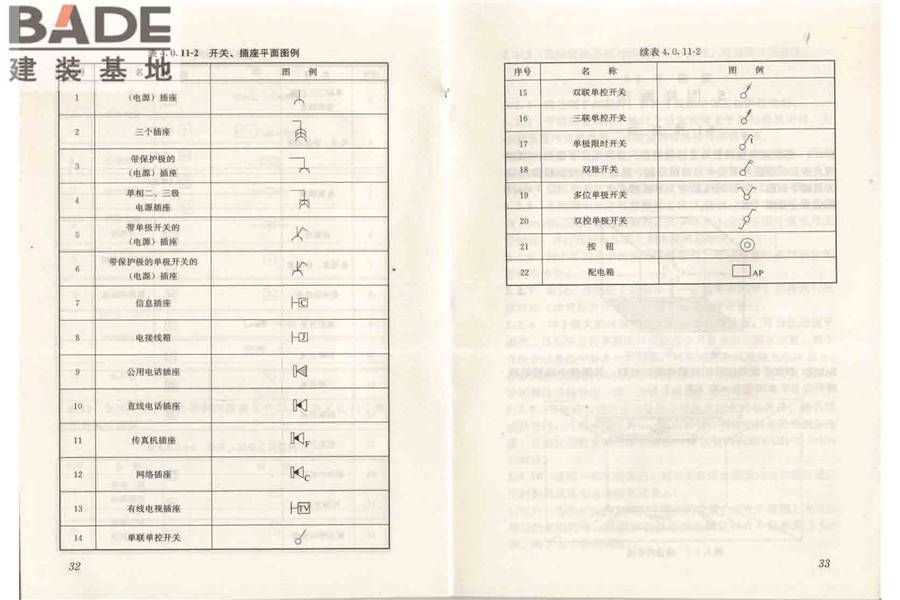 BADE
建装基地
表4.0.11-2 开关、插座平面图例
名 图 例
1 （电源）插座
2 三个插座
3 带保护极的
（电源）插座
4 单相二、三极
电源插座
5 带单极开关的
（电源）插座
6 带保护极的单极开关的
（电源）插座
7 信息插座 C
8 电接线箱 J
9 公用电话插座
10 直线电话插座
11 传真机插座 F
12 网络插座 C
13 有线电视插座 TV
14 单联单控开关
32
续表 4.0.11-2
序号 名 称 图 例
15 双联单控开关
16 三联单控开关
17 单极限时开关 t
18 双极开关
19 多位单极开关
20 双控单极开关
21 按 钮
22 配电箱 AP
33